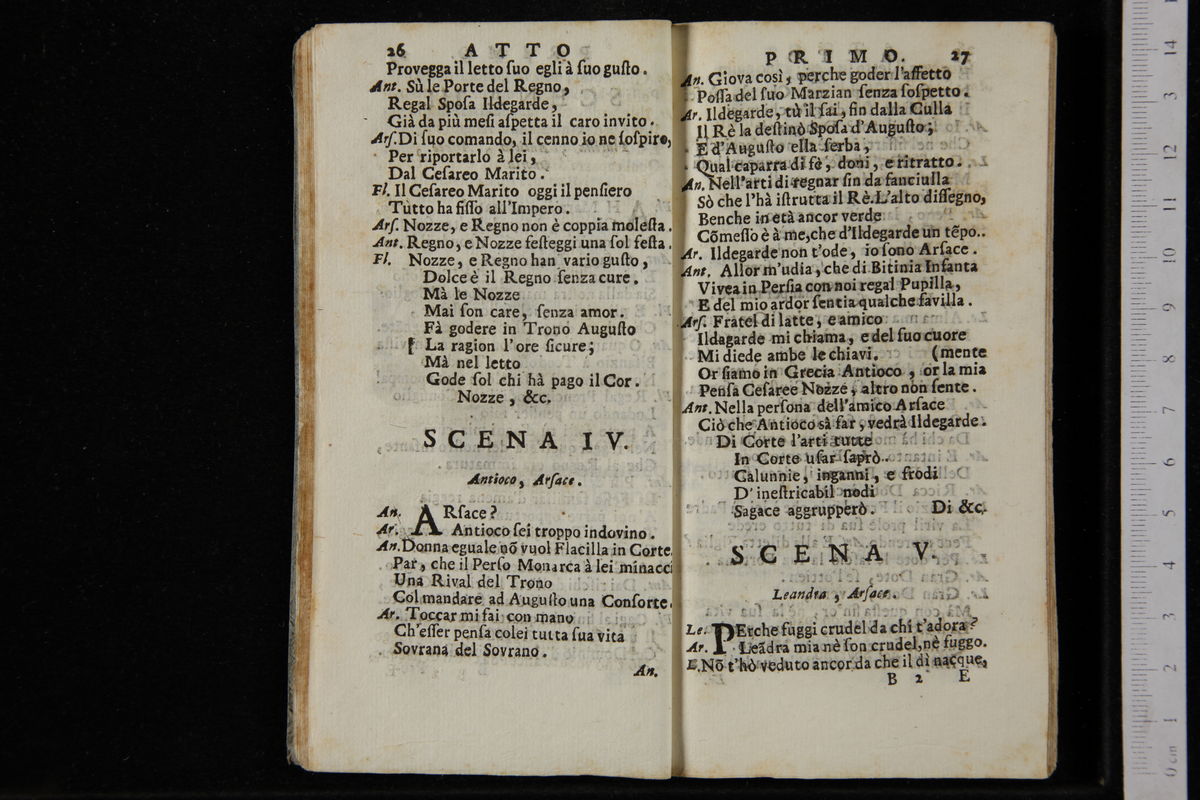 26 ATTO
Provegga il letto ſuo egli à ſuo guſto.
Ant. Sù le Porte del Regno,
Regal Spoſa Ildegarde,
Già da più meſi aſpetta il caro invito.
Arſ. Di ſuo comando, il cenno io ne ſoſpiro,
Per riportarlo à lei,
Dal Ceſareo Marito.
Fl. Il Ceſareo Marito oggi il penſiero
Tutto ha fiſſo all'Impero.
Arſ. Nozze, e Regno non è coppia moleſta.
Ant. Regno, e Nozze feſteggi una ſol feſta.
Fl. Nozze, e Regno han vario guſto,
Dolce è il Regno ſenza cure.
Mà le Nozze
Mai ſon care, ſenza amor.
Fà godere in Trono Auguſto
La ragion l'ore ſicure;
Mà nel letto
Gode ſol chi hà pago il Cor.
Nozze, &c.
SCENA IV.
Antioco, Arſace.
An. ARſace?
Ar. Antioco ſei troppo indovino.
An. Donna eguale nõ vuol Flacilla in Corte
Par, che il Perſo Monarca à lei minacci
Una Rival del Trono
Col mandare ad Auguſto una Conſorte.
Ar. Toccar mi fai con mano
Ch'eſſer penſa colei tutta ſua vita
Sovrana del Sovrano.
An.
PRIMO. 27
An. Giova così, perche goder l'affetto
Poſſa del ſuo Marzian ſenza ſoſpetto.
Ar. Ildegarde, tù il ſai, fin dalla Culla
Il Rè la deſtinò Spoſa d'Auguſto;
E d'Auguſto ella ſerba,
Qual caparra di fè, doni, e ritratto.
An. Nell'arti di regnar fin da fanciulla
Sò che l'hà iſtrutta il Rè. L'alto diſſegno,
Benche in età ancor verde
Cõmeſſo è à me, che d'Ildegarde un tẽpo..
Ar. Ildegarde non t'ode, io ſono Arſace.
Ant. Allor m'udìa, che di Bitinia Infanta
Vivea in Perſia con noi regal Pupilla,
E del mio ardor ſentia qualche favilla.
Arſ. Fratel di latte, e amico
Ildagarde mi chiama, e del ſuo cuore
Mi diede ambe le chiavi. (mente
Or ſiamo in Grecia Antioco, or la mia
Penſa Ceſaree Nozze, altro non ſente.
Ant. Nella perſona dell'amico Arſace
Ciò che Antioco sà far, vedrà Ildegarde.
Di Corte l'arti tutte
In Corte uſar ſaprò.
Calunnie, inganni, e frodi
D'ineſtricabil nodi
Sagace aggrupperò. Di &c.
SCENA V.
Leandra, Arſace.
Le. PErche fuggi crudel da chi t'adora?
Ar. Leãdra mia nè ſon crudel, nè fuggo.
L. Nõ t'hò veduto ancor da che il dì nacque,
B 2 E